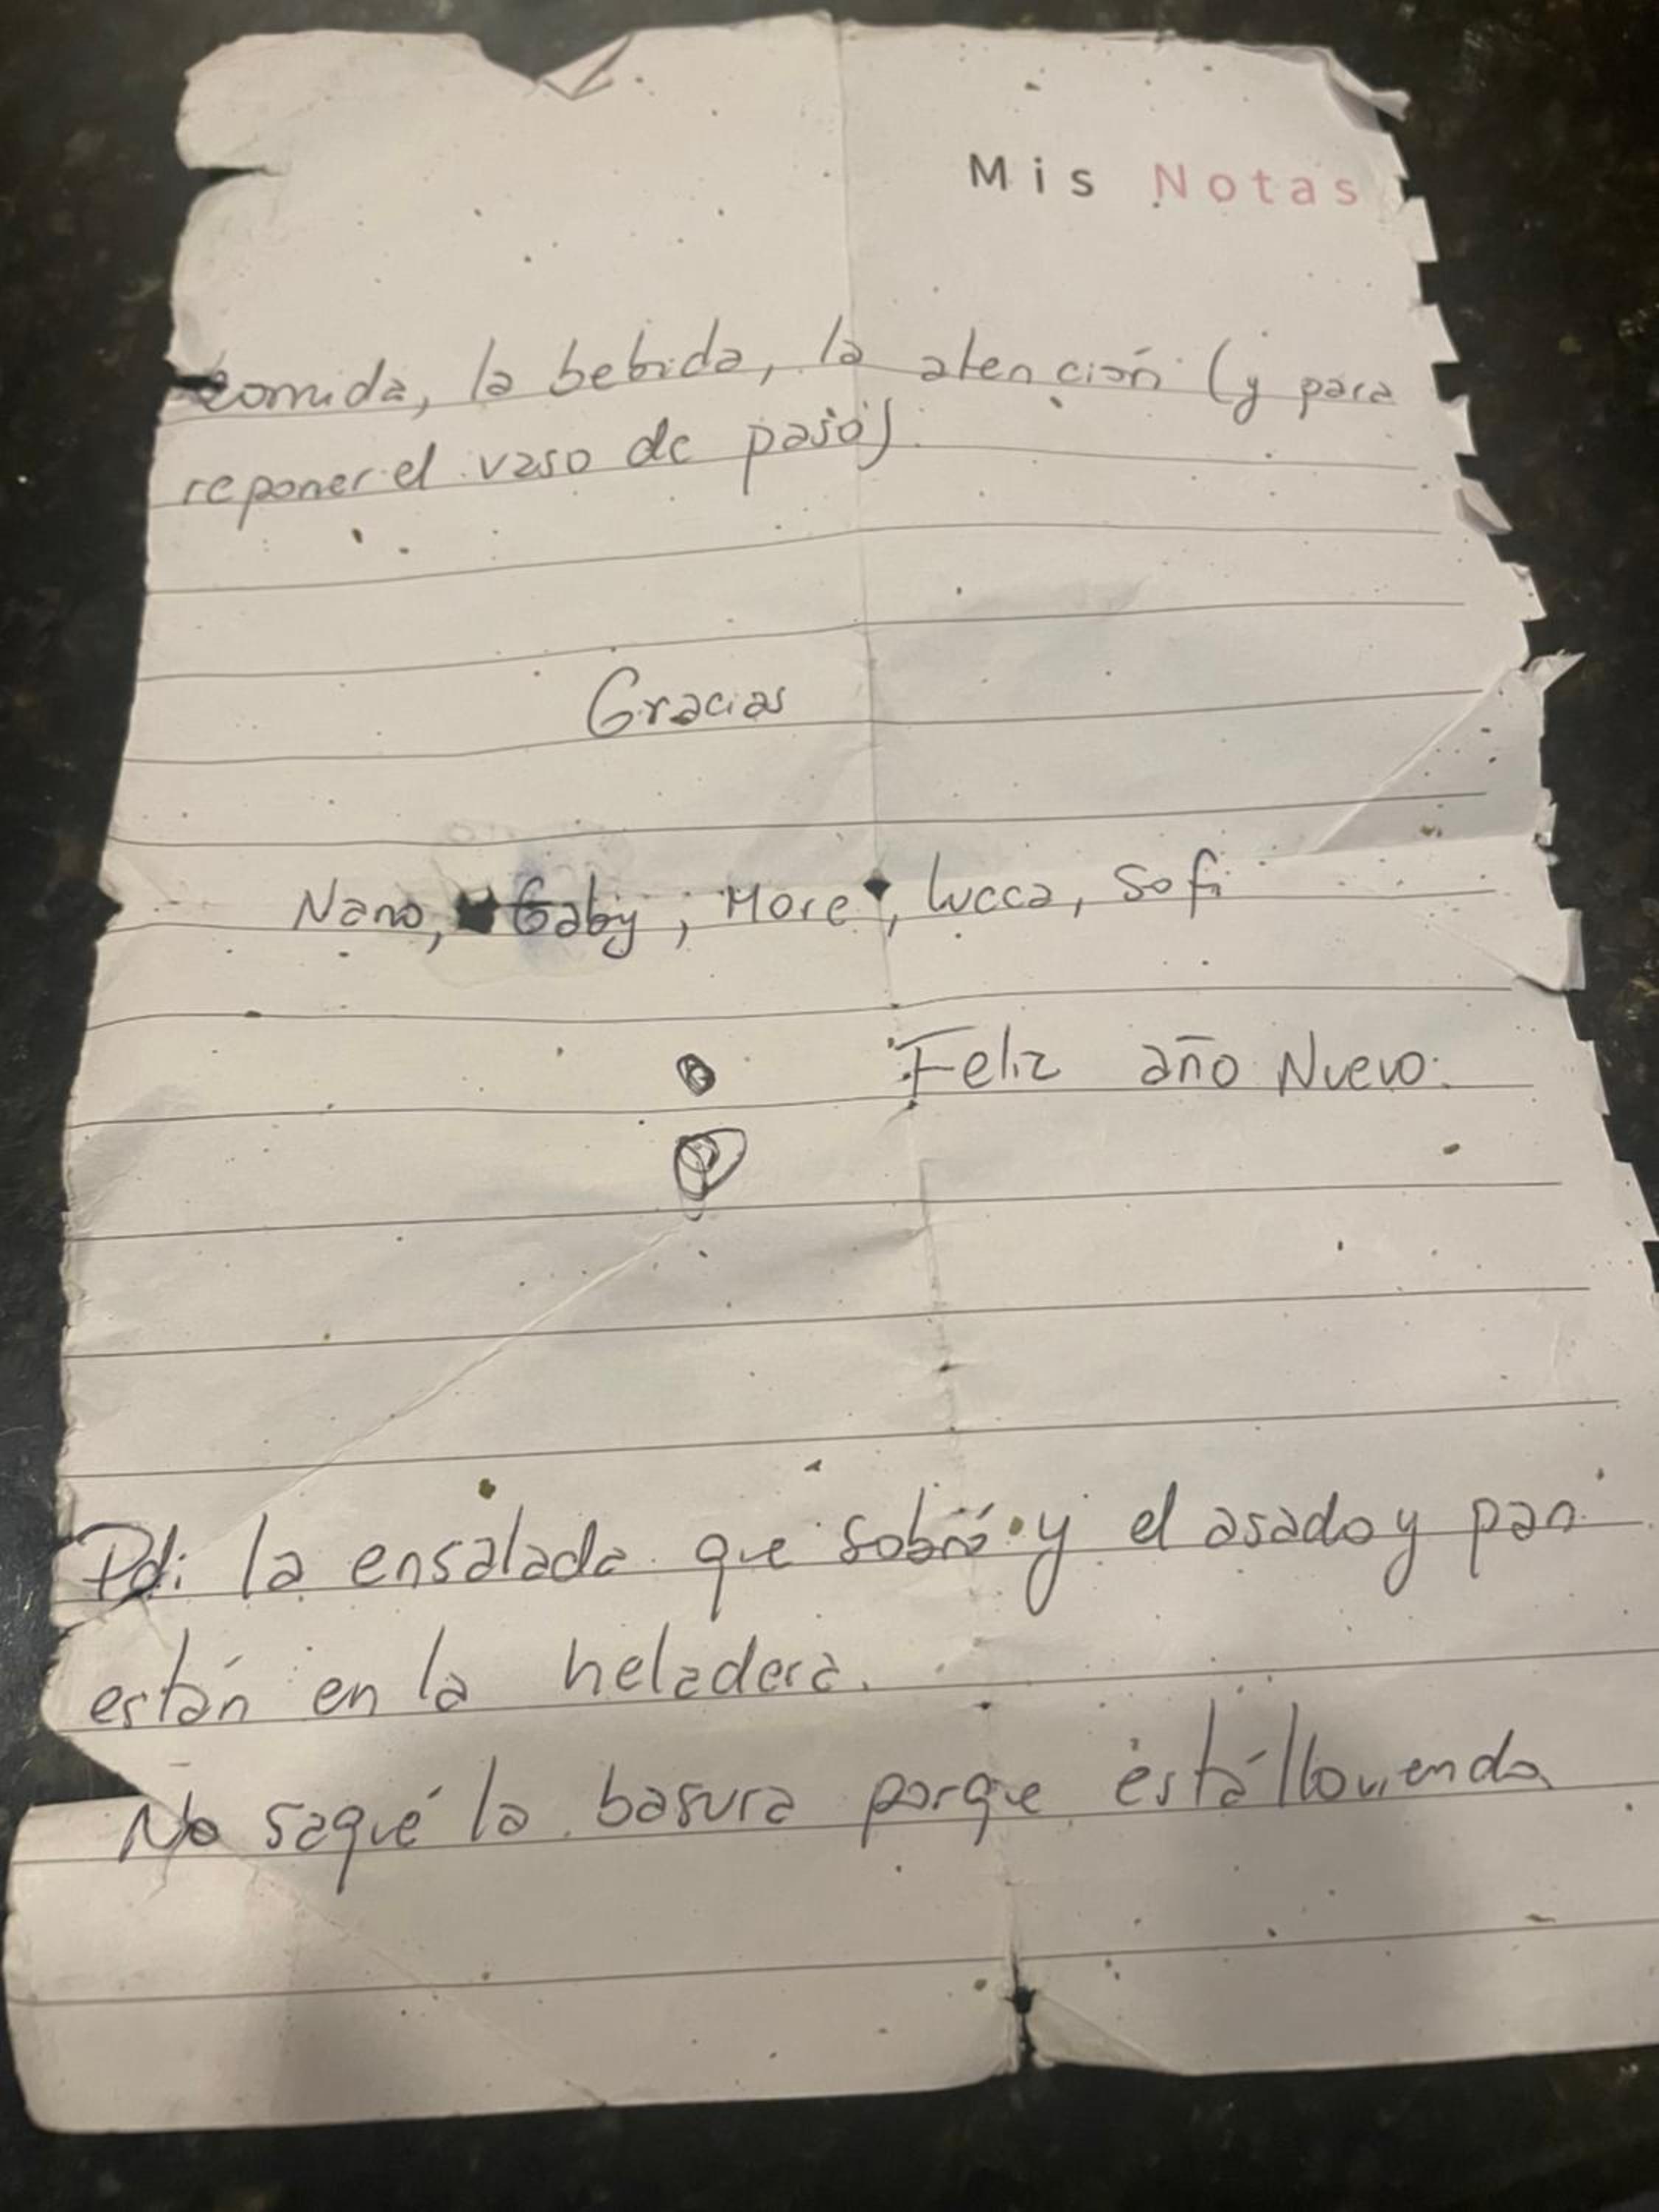 Mis Notas
comida, la bebida, la atención (y para
reponer el vaso de paso)
Gracias
Nano, Gaby, More, Lucca, Sofi
Feliz año Nuevo.
Pd: la ensalada que sobró y el asado y pan
están en la heladera.
No saqué la basura porque está lloviendo